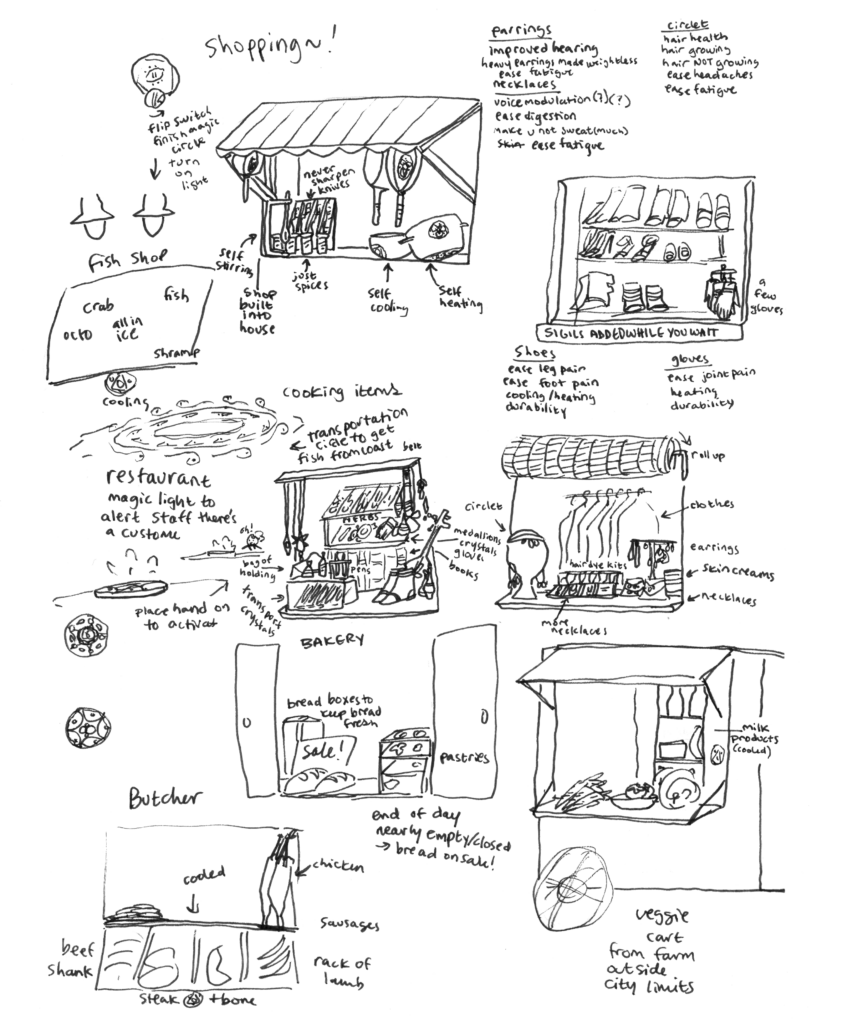 Shopping~!
flip switch
finish magic
circle
turn
on
light
earrings
improved hearing
heavy earrings made weightless
ease fatigue
necklaces
voice modulation(?)(?)
ease digestion
make u not sweat(much)
ease fatigue
circlet
hair health
hair growing
hair NOT growing
ease headaches
ease fatigue
never
sharpen
knives
self
stirring
shop
built
into
house
just
spices
self
cooling
self
heating
cooking items
a
few
gloves
SIGILS ADDED WHILE YOU WAIT
Shoes
ease leg pain
ease foot pain
cooling/heating
durability
gloves
ease joint pain
heating
durability
fish shop
crab
fish
octo
all in
ice
shramp
cooling
transportation
circle to get
fish from coast
restaurant
magic light to
alert staff there's
a custome
oh!
place hand on
to activat
belt
HERBS
medallions
crystals
gloves
books
bag of
holding
pens
transport
crystals
roll up
circlet
clothes
earrings
hair dye kits
skin creams
necklaces
more
necklaces
BAKERY
bread boxes to
keep bread
fresh
Sale!
pastries
end of day
nearly empty/closed
→ bread on sale!
milk
products
(cooled)
veggie
cart
from farm
outside
city limits
Butcher
cooled
chicken
sausages
beef
shank
rack of
lamb
steak
tbone